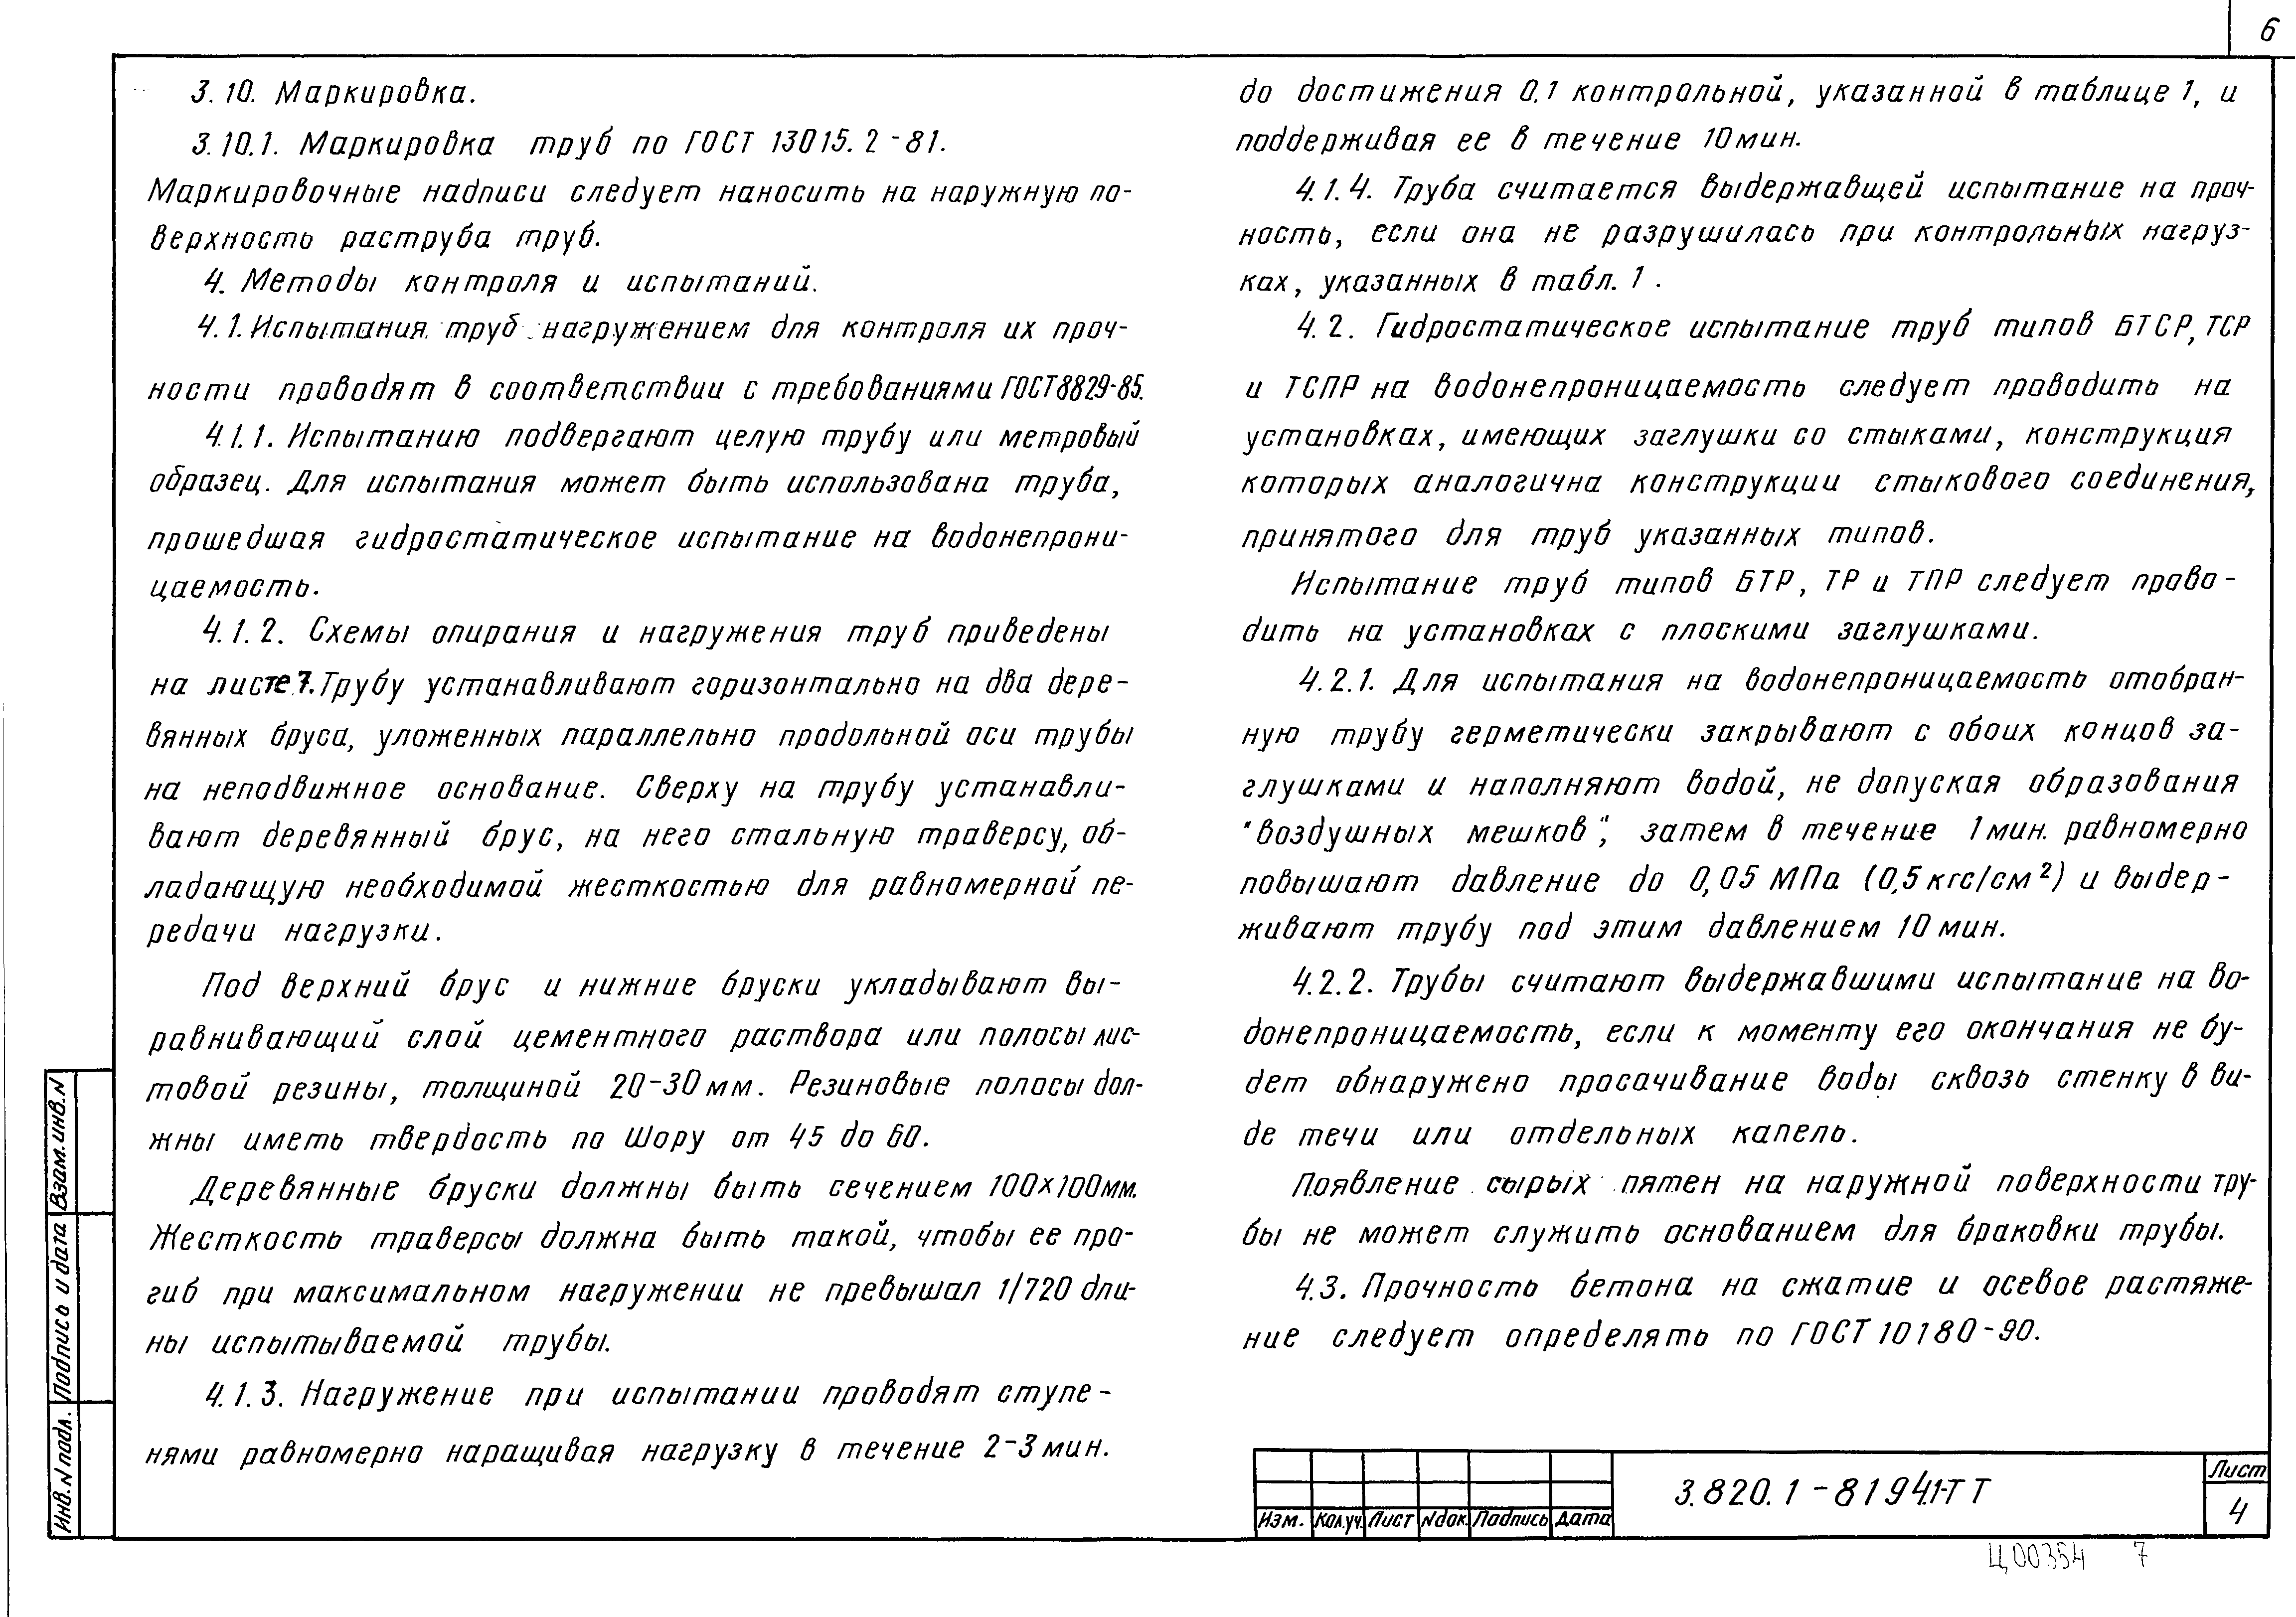 6
3.10. Маркировка.
3.10.1. Маркировка труб по ГОСТ 13015.2-81.
Маркировочные надписи следует наносить на наружную по-
верхность раструба труб.
4. Методы контроля и испытаний.
4.1. Испытания труб нагружением для контроля их проч-
ности проводят в соответствии с требованиями ГОСТ 8829-85.
4.1.1. Испытанию подвергают целую трубу или метровый
образец. Для испытания может быть использована труба,
прошедшая гидростатическое испытание на водонепрони-
цаемость.
4.1.2. Схемы опирания и нагружения труб приведены
на листе 7. Трубу устанавливают горизонтально на два дере-
вянных бруса, уложенных параллельно продольной оси трубы
на неподвижное основание. Сверху на трубу устанавли-
вают деревянный брус, на него стальную траверсу, об-
ладающую необходимой жесткостью для равномерной пе-
редачи нагрузки.
Под верхний брус и нижние бруски укладывают вы-
равнивающий слой цементного раствора или полосы лис-
товой резины, толщиной 20-30 мм. Резиновые полосы дол-
жны иметь твердость по Шору от 45 до 60.
Деревянные бруски должны быть сечением 100×100мм.
Жесткость траверсы должна быть такой, чтобы ее про-
гиб при максимальном нагружении не превышал 1/720 дли-
ны испытываемой трубы.
4.1.3. Нагружение при испытании проводят ступе-
нями равномерно наращивая нагрузку в течение 2-3 мин.
до достижения 0.1 контрольной, указанной в таблице 1, и
поддерживая ее в течение 10 мин.
4.1.4. Труба считается выдержавщей испытание на проч-
ность, если она не разрушилась при контрольных нагруз-
ках, указанных в табл. 1.
4.2. Гидростатическое испытание труб типов БТСР, ТСР
и ТСПР на водонепроницаемость следует проводить на
установках, имеющих заглушки со стыками, конструкция
которых аналогична конструкции стыкового соединения,
принятого для труб указанных типов.
Испытание труб типов БТР, ТР и ТПР следует прово-
дить на установках с плоскими заглушками.
4.2.1. Для испытания на водонепроницаемость отобран-
ную трубу герметически закрывают с обоих концов за-
глушками и наполняют водой, не допуская образования
"воздушных мешков", затем в течение 1 мин. равномерно
повышают давление до 0,05 МПа (0,5 кгс/см²) и выдер-
живают трубу под этим давлением 10 мин.
4.2.2. Трубы считают выдержавшими испытание на во-
донепроницаемость, если к моменту его окончания не бу-
дет обнаружено просачивание воды сквозь стенку в ви-
де течи или отдельных капель.
Появление сырых пятен на наружной поверхности тру-
бы не может служить основанием для браковки трубы.
4.3. Прочность бетона на сжатие и осевое растяже-
ние следует определять по ГОСТ 10180-90.
Взам.инв.N
Подпись и дата
Инв.N подл.
Изм. Кол.уч. Лист Nдок. Подпись Дата
3.820.1-81 94.1-ТТ
Лист
4
Ц00354 7